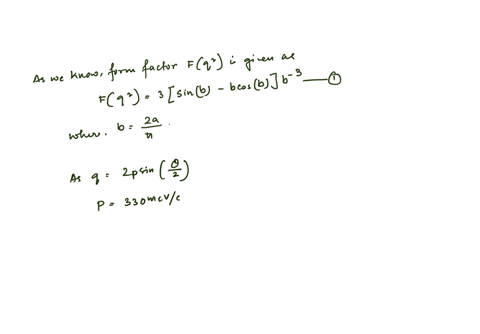 As we know, form factor F(q²) is given as
F(q²) = 3 [sin(b) - b cos(b)] b⁻³ —— ①
wher. b = 2a/ħ .
As q = 2p sin(θ/2)
P = 330 mev/c